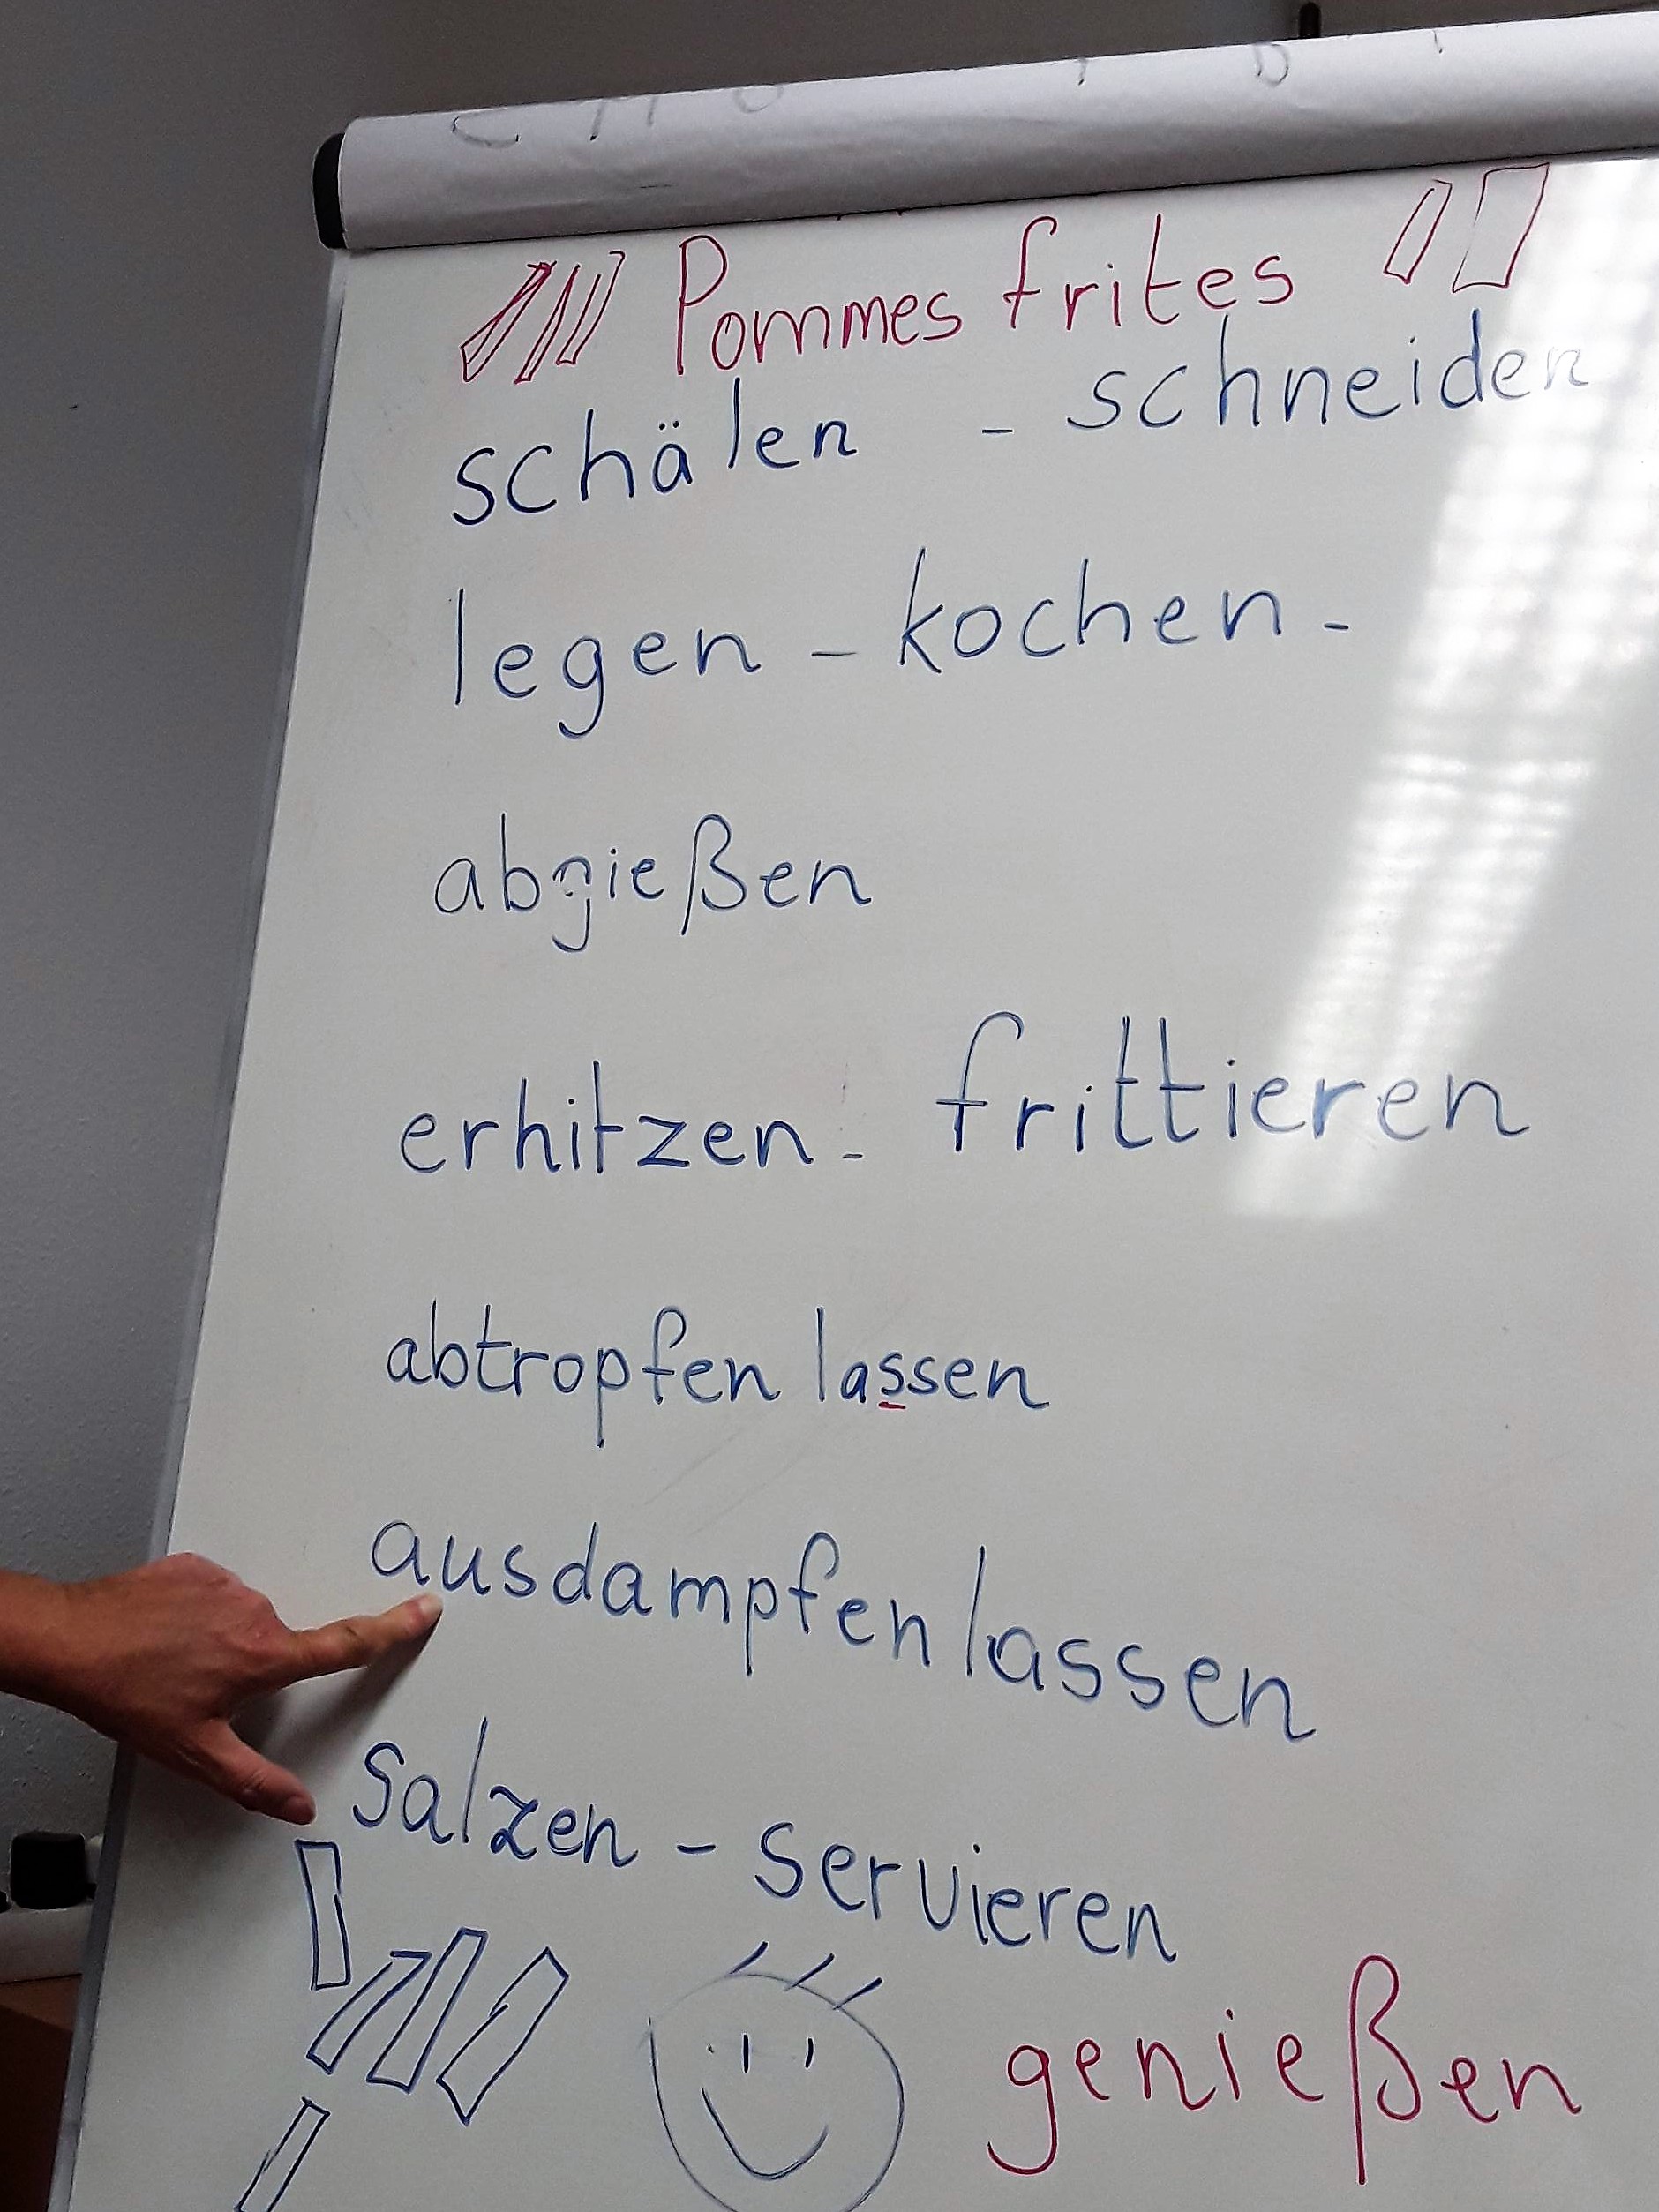 Pommes frites
schälen - schneiden
legen - kochen -
abgießen
erhitzen - frittieren
abtropfen lassen
ausdampfen lassen
salzen - servieren
genießen